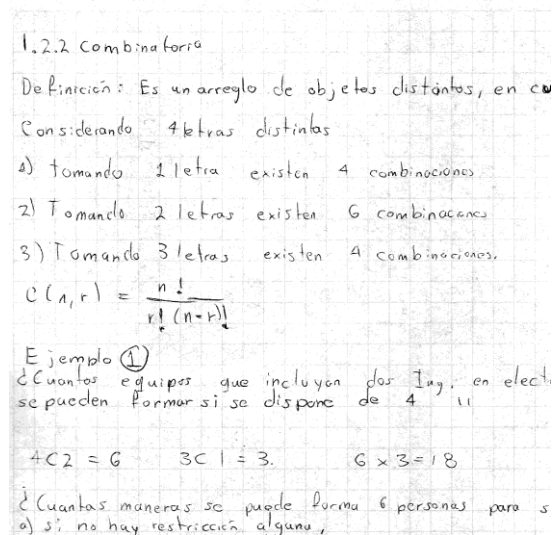 1.2.2 Combinatoria
Definición: Es un arreglo de objetos distintos, en cu
Considerando 4 letras distintas
1) tomando 1 letra existen 4 combinaciones
2) Tomando 2 letras existen 6 combinaciones
3) Tomando 3 letras existen 4 combinaciones.
C(n,r) = n! / r! (n-r)!
Ejemplo 1
¿Cuantos equipos que incluyen dos Ing. en elect
se pueden formar si se dispone de 4 "
4C2 = 6 3C1 = 3. 6 x 3 = 18
¿Cuantas maneras se puede forma 6 personas para s
a) si no hay restricción alguna,